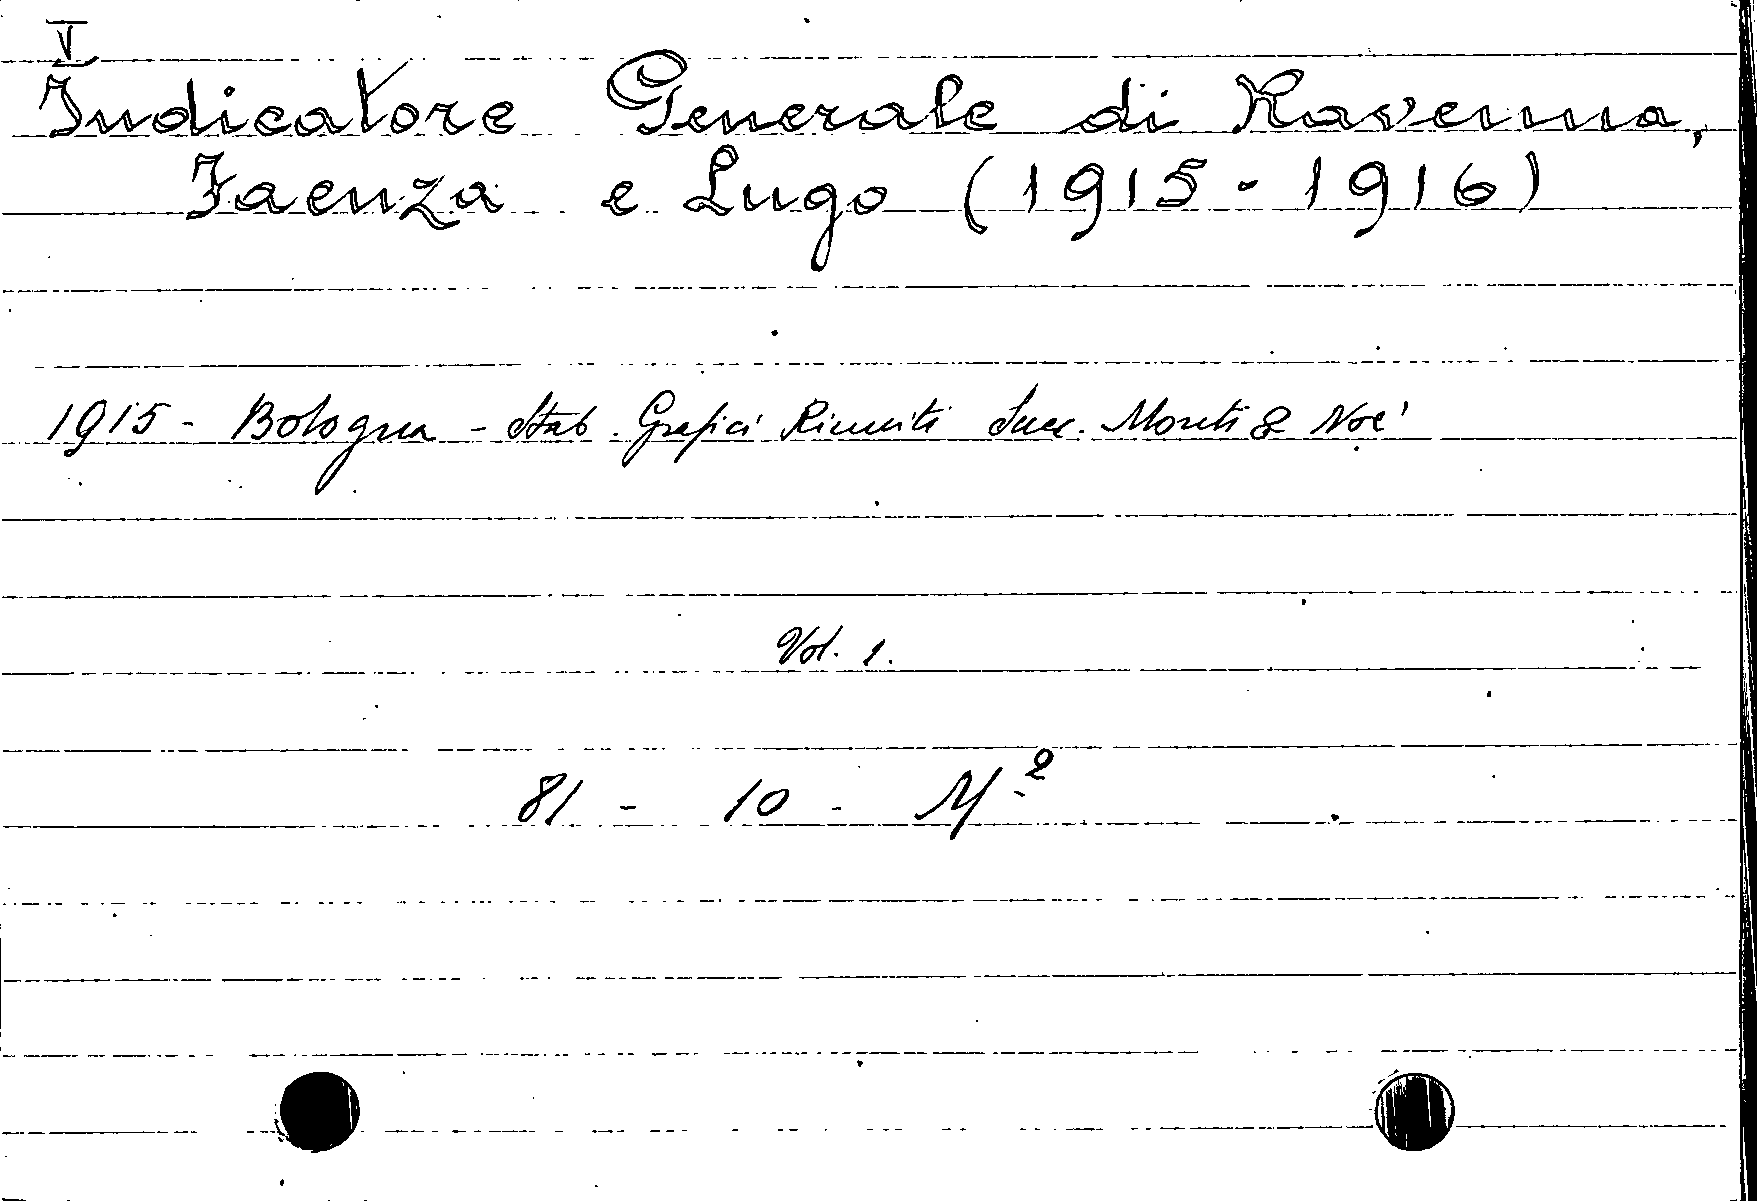 V
Indicatore Generale di Ravenna,
Faenza e Lugo (1915-1916)
1915 - Bologna - Stab. Grafici Riuniti Succ. Monti & Noè
Vol. 1.
81 - 10 - M²